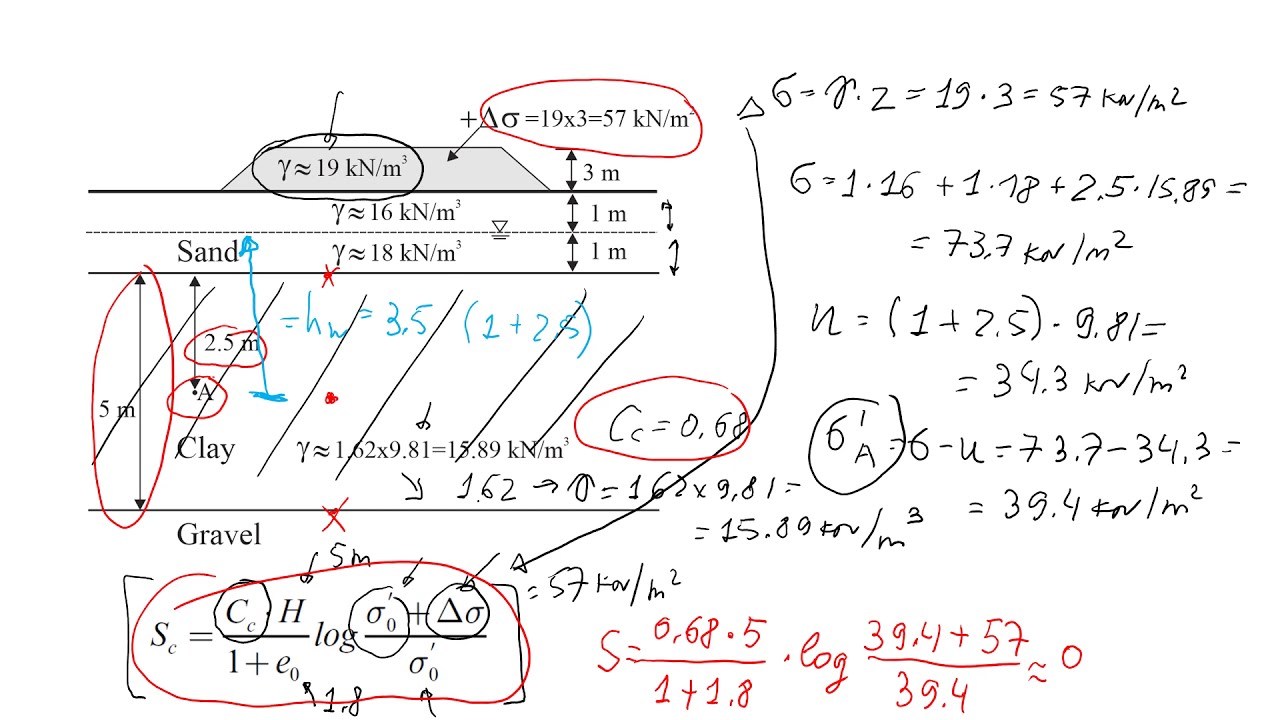 +Δσ =19x3=57 kN/m²
γ≈19 kN/m³
3 m
γ≈16 kN/m³
1 m
Sand
γ≈18 kN/m³
1 m
= hw = 3.5 (1+2.5)
2.5 m
A
5 m
Clay
γ≈1.62x9.81=15.89 kN/m³
Cc = 0,68
1.62 → γ = 1.62 x 9,81 =
= 15.89 kN/m³
Gravel
5m
= 57 kN/m²
Sc = Cc · H / (1 + e₀) log (σ₀' + Δσ) / σ₀'
1.8
Δσ = γ · z = 19 · 3 = 57 kN/m²
σ = 1·16 + 1·18 + 2,5·15,89 =
= 73,7 kN/m²
u = (1+2,5) · 9,81 =
= 34.3 kN/m²
σ'A = σ - u = 73,7 - 34,3 =
= 39.4 kN/m²
S = 0,68 · 5 / (1+1,8) · log (39,4 + 57) / 39.4 ≈ 0